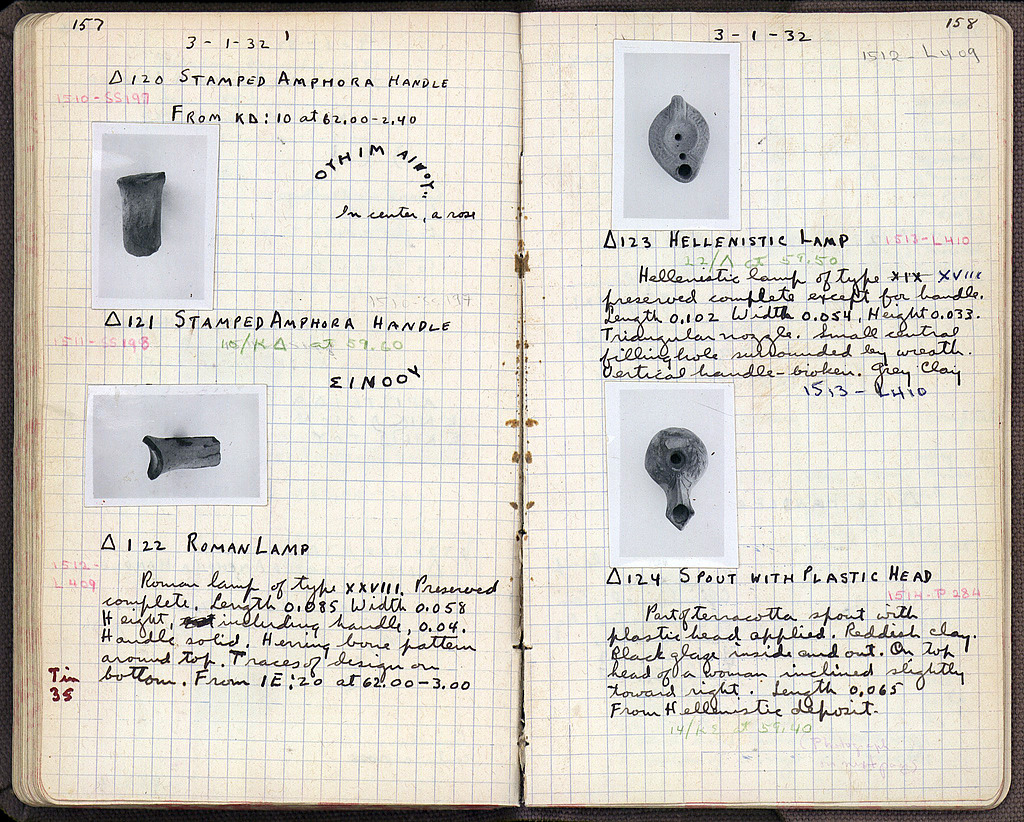 157
3-1-32
Δ120 STAMPED AMPHORA HANDLE
1510-SS197
FROM KΔ:10 at 62.00-2.40
In center, a rose
Δ121 STAMPED AMPHORA HANDLE
1511-SS198
at 59.60
Δ122 ROMAN LAMP
1512-
L409
Roman lamp of type XXVIII. Preserved
complete. Length 0.085 Width 0.058
Height, including handle, 0.04.
Handle solid. Herring bone pattern
around top. Traces of design on
bottom. From IE:20 at 62.00-3.00
Tin
35
158
3-1-32
1512-L409
Δ123 HELLENISTIC LAMP
1513-L410
at 59.50
Hellenistic lamp of type XIX XVIII
preserved complete except for handle.
Length 0.102 Width 0.054, Height 0.033.
Triangular nozzle. Small central
filling hole surrounded by wreath.
Vertical handle-broken. Grey Clay
1513-L410
Δ124 SPOUT WITH PLASTIC HEAD
1514-P284
Part of terracotta spout with
plastic head applied. Reddish clay.
Black glaze inside and out. On top
head of a woman inclined slightly
toward right. Length 0.065
From Hellenistic deposit.
at 59.40